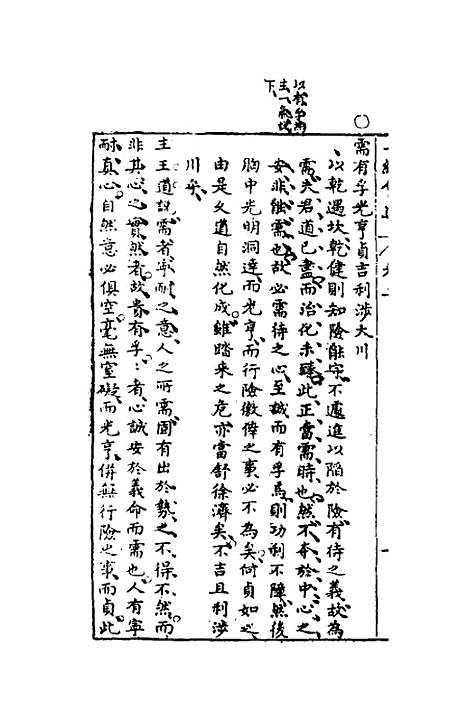 需有孚光亨貞吉利涉大川
以乾遇坎乾健則知險能守不遽進以陷於險有待之義故為
需夫君道已盡而治化未臻此正當需時也然不本於中心之
安非能需也故必需待之心至誠而有孚焉則功利不障然後
胸中光明洞達而光亨而行險徼倖之事必不為矣何貞如之
由是久道自然化成雖踏來之危亦當舒徐濟矣不吉且利涉
川矣
主王道說需者寧耐之意人之所需固有出於勢之不得不然而
非其心之實然者故貴有孚：者心誠安於義命而需也人有寧
耐真心自然意必俱空毫無窒礙而光亨併無行險之事而貞此